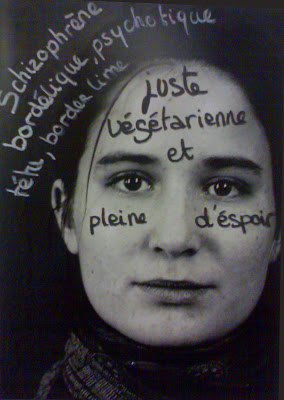 Schizophrène
bordélique, psychotique
têtu, border line
juste
végétarienne
et
pleine d'éspoir